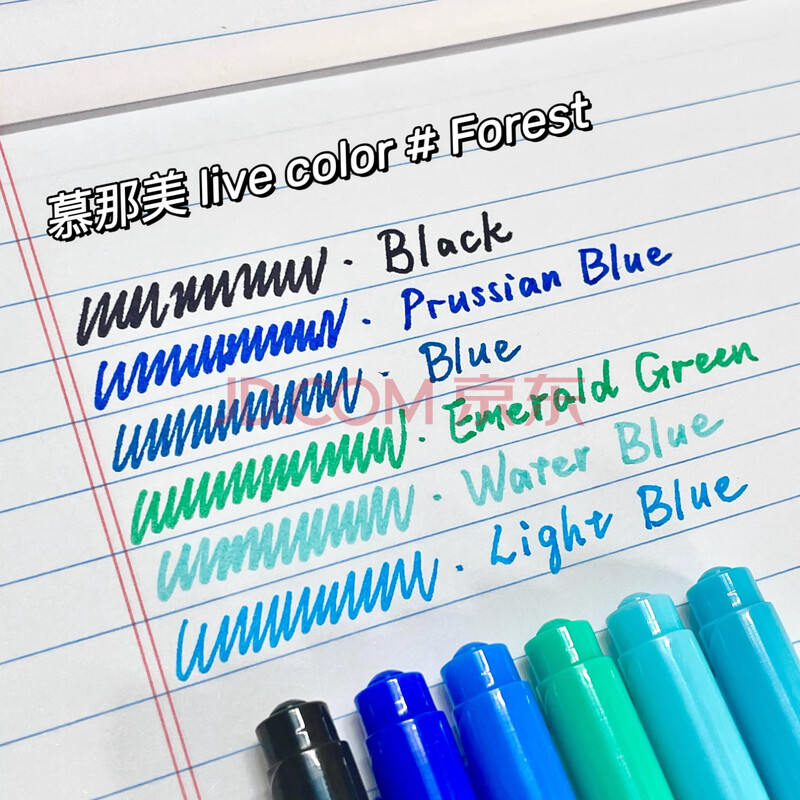 慕那美 live color # Forest
Black
Prussian Blue
Blue
JD.COM 京东
Emerald Green
Water Blue
Light Blue